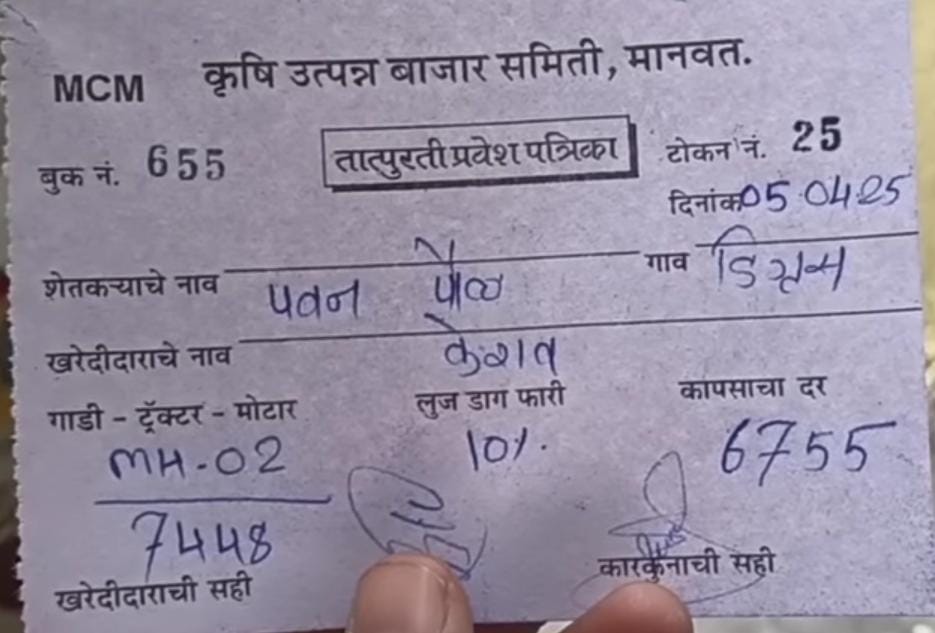 MCM कृषि उत्पन्न बाजार समिती, मानवत.
बुक नं. 655 तात्पुरती प्रवेश पत्रिका टोकन नं. 25
दिनांक 05.04.25
शेतकऱ्याचे नाव पवन पौळ गाव
खरेदीदाराचे नाव केशव
गाडी - ट्रॅक्टर - मोटार लुज डाग फारी कापसाचा दर
MH-02 10%. 6755
7448
खरेदीदाराची सही कारकुनाची सही